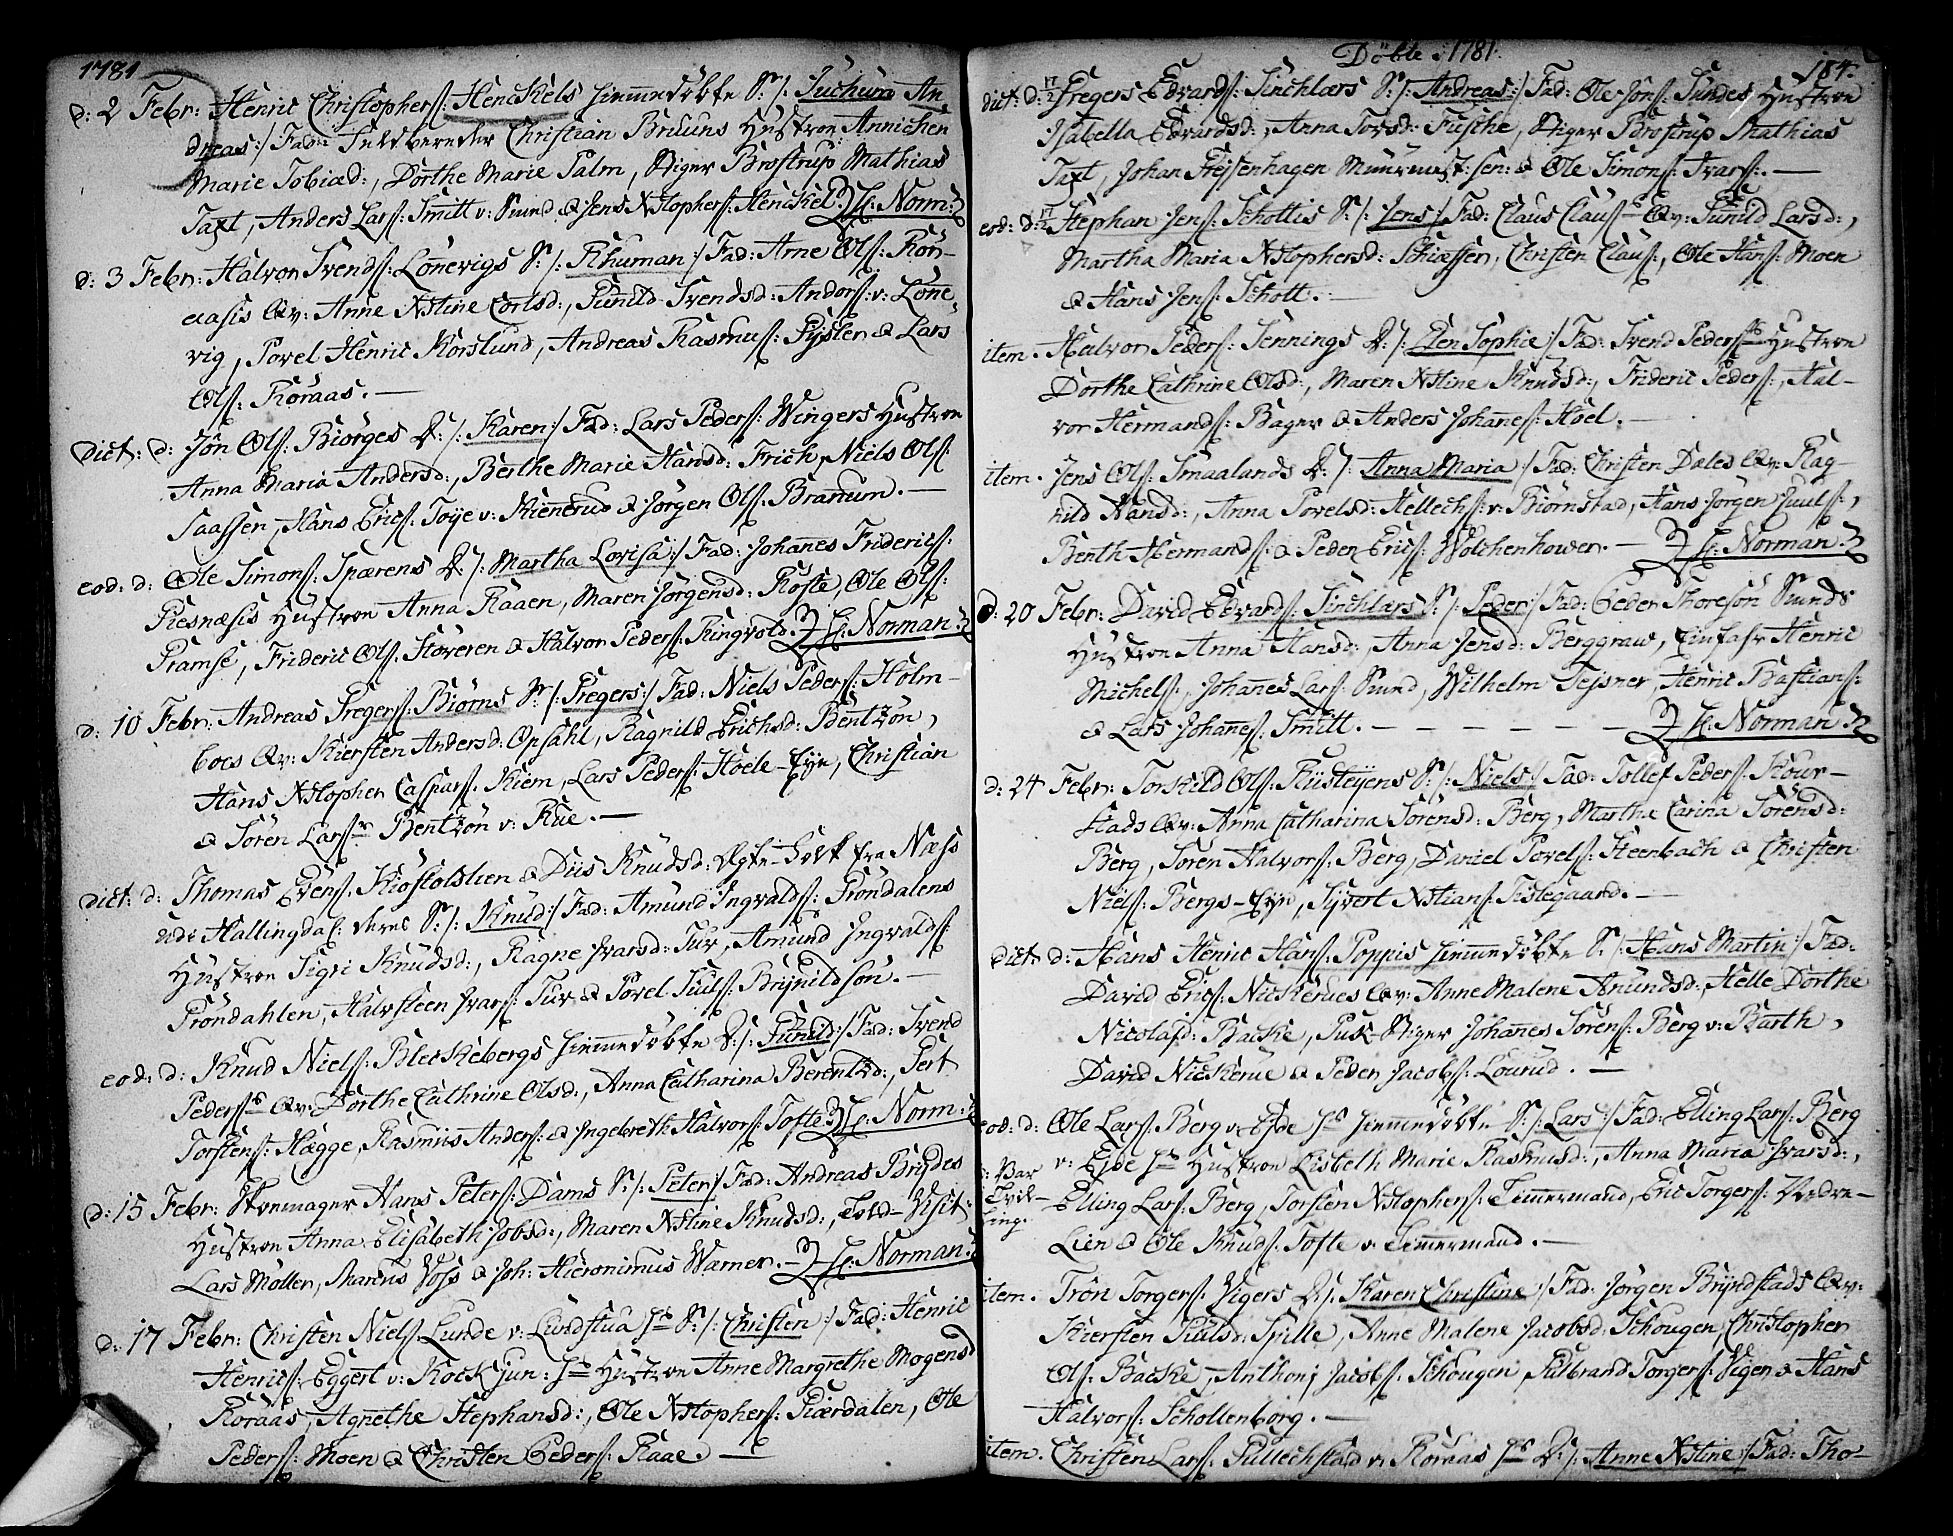 1781
d: 2 Febr: Henric Christophers: Henckels hiemmedöbte S: /: Juchum An
dreas :/ Fad: Feldbereder Christian Bruuns Hustroe Annichen
Marie Tobiæd:, Dorthe Marie Palm, Stiger Brostrup Mathias
Taxt, Anders Lars: Smitt v: Smed & Jens Xstophers: Henckel. H: Norm:
d: 3 Febr: Halvor Svends: Lönevigs S: /: Rhuman :/ Fad: Arne Ols: Rör-
aasis Qv: Anne Xstine Corlsd:, Gunild Svendsd: Anders: v: Löne
vig, Povel Henric Korslund, Andreas Rasmus: Pijsler & Lars
Ols: Röraas. —
Dict: d: Jön Ols: Biörges D: /: Karen :/ Fad: Lars Peders: Wingers Hustroe
Anna Maria Andersd:, Berthe Marie Hansd: Frich, Niels Ols:
Saassen, Hans Erics: Toÿe v: Kienerud & Jörgen Ols: Brattum. —
eod: d: Ole Simons: Spærens D: /: Martha Lovisa :/ Fad: Johannes Friderics:
Resnæsis Hustroe Anna Raaen, Maren Jörgensd: Roste, Ole Ols:
Pramse, Frideric Ols: Störeren & Halvor Peders: Ringvold. H: Norman.
d: 10 Febr: Andreas Gregers: Biörns S: /: Gregers :/ Fad: Niels Peders: Holm-
boes Qv: Kiersten Andersd: Opsahl, Ragnild Erichsd: Bentzön,
Hans Xstopher Caspars: Kiem, Lars Peders: Hoele-Eÿe, Christian
& Sören Lars: Bentzön v: Rüe. —
dict: d: Thomas Evens: Kiöstolslien & Diis Knudsd: Ægte-Folk fra Næss
udi Hallingdal: deres S: /: Knud :/ Fad: Amund Ingvalds: Pröndalens
Hustroe Sigri Knudsd:, Ragne Ivarsd: Tuv, Amund Ingvalds:
Pröndahlen, Halvsteen Ivars: Tuv & Povel Juuls: Brÿnildsön. —
eod: d: Knud Niels: Bleskebergs hiemmedöbte D: /: Gunild :/ Fad: Svend
Peders: Qv: Dorthe Cathrine Olsd:, Anna Catharina Berentzd:, Gert
Torstens: Hægge, Rasmus Anders: & Ingebreth Halvors: Tofte. H: Norm:
d: 15 Febr: Skoemager Hans Peters: Dams S: /: Peter :/ Fad: Andreas Brÿdes
Hustroe Anna Elisabeth Jobsd:, Maren Xstine Knudsd:, Told-Visit:
Lars Möller, Marcus Voss & Joh: Hieronimus Warner. — H: Norman.
d: 17 Febr: Christen Niels: Lunde v: Lundstua S: /: Christen :/ Fad: Henric
Henrics: Eggert v: Rock jun: Hustroe Anne Margrethe Mogensd
Roraas, Agnethe Stephansd:, Ole Xstophers: Giærdalen, Ole
Peders: Moen & Christen Peders: Raae. —
Döbte 1781.
184.
dict: d: 17/2 Gregers Edvards: Sinchlærs S: /: Andreas :/ Fad: Ole Jöns: Sundes Hustroe
Isabella Edvardsd:, Anna Torsd: Fusche, Stiger Brostrup Mathias
Taxt, Johan Heÿsenhagen Muurmest: sen: & Ole Simons: Svars:. —
eod: d: 17/2 Stephan Jens: Schottis S: /: Jens :/ Fad: Claus Claus: Qv: Gunild Larsd:,
Martha Maria Xstophersd: Schiessen, Christen Claus:, Ole Hans: Moen
& Hans Jens: Schott. —
item. Halvor Peders: Jennings D: /: Elen Sophie :/ Fad: Svend Peders: Hustroe
Dorthe Cathrine Olsd:, Maren Xstine Knudsd:, Frideric Peders:, Hal-
vor Hermands: Bager & Anders Johannes: Hoel. —
item. Jens Ols: Smaalands D: /: Anna Maria :/ Fad: Christen Dales Qv: Rag-
nild Hansd:, Anna Povelsd: Hellechs: v: Biörnstad, Hans Jörgen Juuls:,
Benth Hermands: & Peder Erics: Wolchenhower. — H: Norman.
d: 20 Febr: David Edvards: Sinchlærs S: /: Peder :/ Fad: Peder Thoresön Smeds
Hustroe Anna Hansd:, Anna Jensd: Berggraw, Einfahr Henric
Michels:, Johannes Lars: Smed, Wilhelm Tessner, Henric Bastians:
& Lars Johannes: Smitt. — — — — — H: Norman.
d: 24 Febr: Torskild Ols: Rudteÿens S: /: Niels :/ Fad: Tollef Peders: Skour-
stads Qv: Anna Catharina Sörensd: Berg, Marthe Carina Sörensd:
Berg, Sören Halvors: Berg, Daniel Povels: Steenbach & Christen
Niels: Bergs-Eÿe, Sÿvert Xstians: Tislegaard. —
Dict: d: Hans Henric Hans: Poppis hiemmedöbte S: /: Hans Martin :/ Fad:
David Erics: Nickerues Qv: Anne Malene Amundsd:, Helle Dorthe
Nicolajsd: Backe, Puk-Stiger Johannes Sörens: Berg v: Barth,
David Nickerue & Peder Jacobs: Lourud. —
eod: d: Ole Lars: Berg v: Eÿde hiemmedöbte S: /: Lars :/ Fad: Elling Lars: Berg
v: Eÿde Hustroe Lisbeth Marie Rasmusd:, Anna Maria Ivarsd:,
: Var
Tvil-
ling.
Elling Lars: Berg, Torsten Xstophers: Temmermand, Eric Torgers: Vedre-
Lien & Ole Knuds: Tofte v: Temmermand. —
item. Trön Torgers: Vigers D: /: Karen Christine :/ Fad: Jörgen Brÿndstads Qv:
Kiersten Juulsd: Spille, Anne Malene Jacobsd: Schougen, Christopher
Ols: Backe, Anthonj Jacobs: Schougen, Gulbrand Torgers: Vigen & Hans
Halvors: Schollenborg. —
item. Christen Lars: Gullechstad v: Roraas D: /: Anne Xstine :/ Fad: Tho-